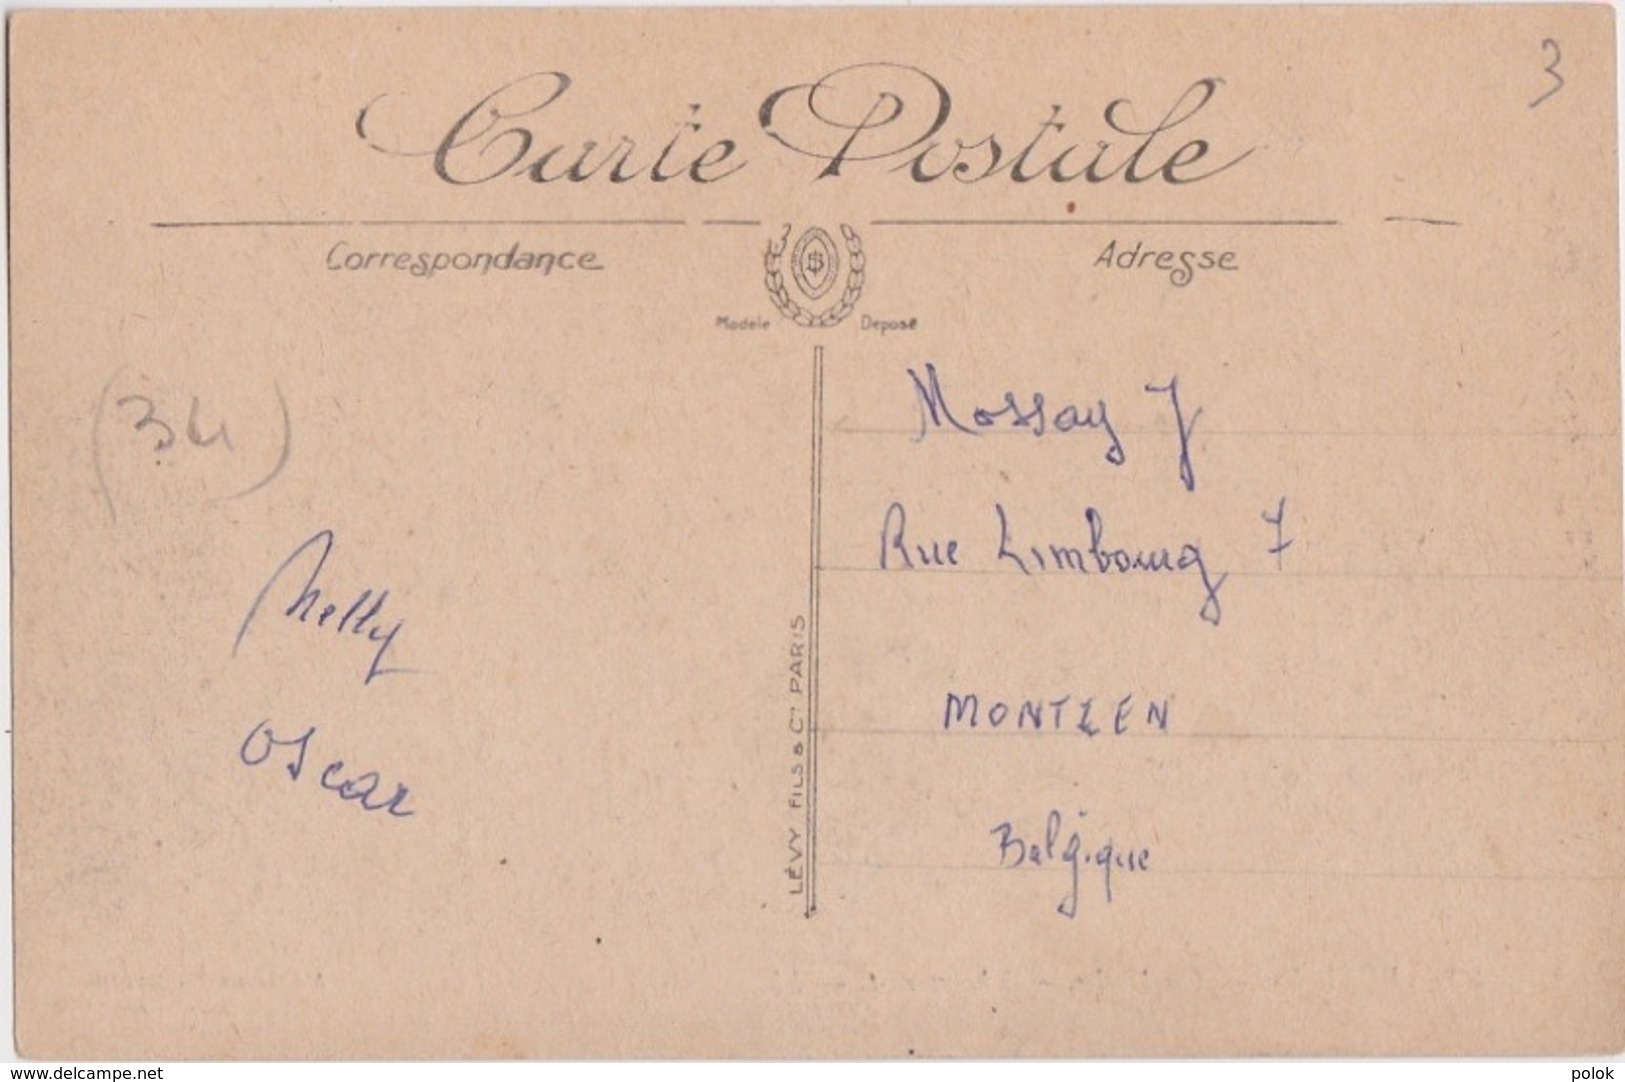 3
Carte Postale
Correspondance
Adresse
Modèle Déposé
(34)
Nelly
Oscar
LÉVY FILS & Cie PARIS
Mossay J
Rue Limbourg 7
MONTZEN
Belgique
www.delcampe.net
polok